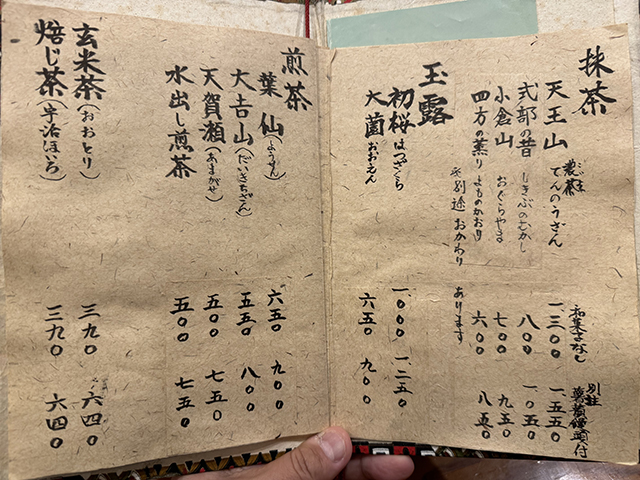 抹茶
和菓子なし
別註
薯蕷饅頭付
天王山 濃茶 てんのうざん 一三〇〇 一五五〇
式部の昔 しきぶのむかし 八〇〇 一〇五〇
小倉山 おぐらやま 七〇〇 九五〇
四方の薫り よものかおり 六〇〇 八五〇
※別途 おかわり あります
玉露
初桜 はつざくら 一、〇〇〇 一二五〇
大薗 おおえん 六五〇 九〇〇
煎茶
葉仙(ようせん) 六五〇 九〇〇
大吉山(だいきちざん) 五五〇 八〇〇
天賀瀬(あまがせ) 五〇〇 七五〇
水出し煎茶 五〇〇 七五〇
玄米茶(おおとり) 三九〇 六四〇
焙じ茶(宇治ほいろ) 三九〇 六四〇